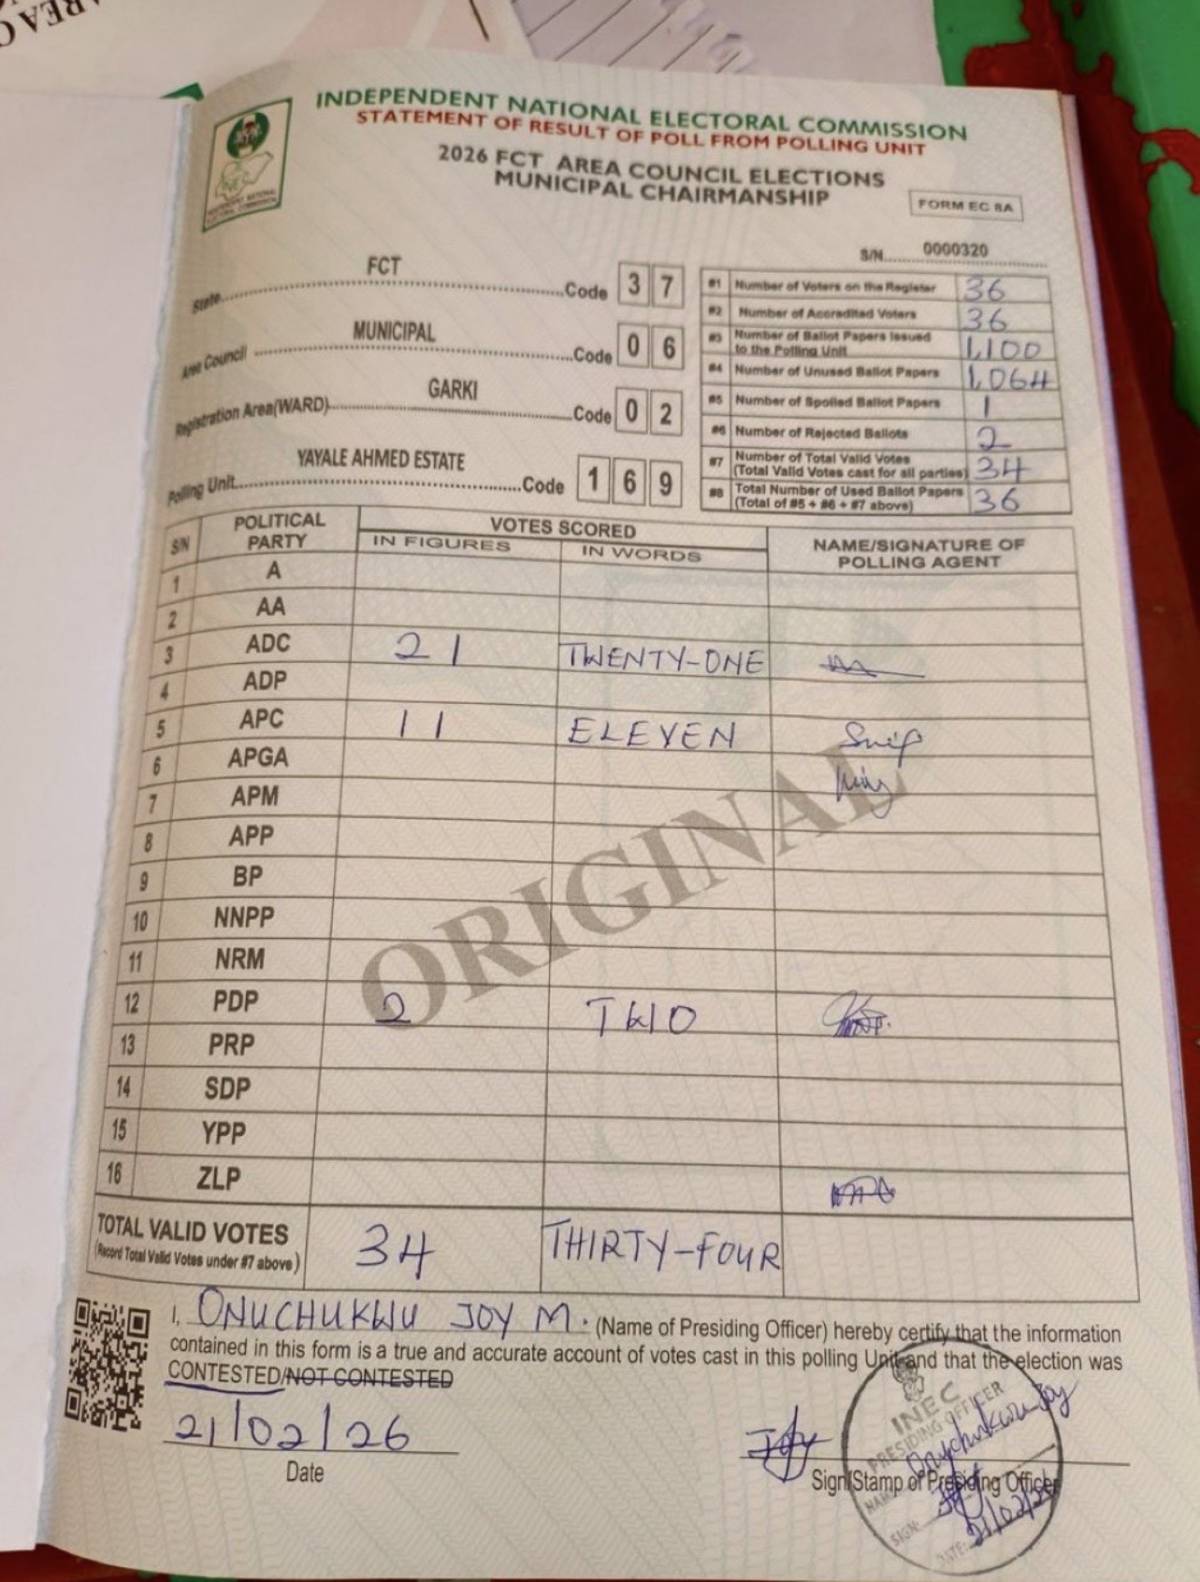 AREA CO
INDEPENDENT NATIONAL ELECTORAL COMMISSION
STATEMENT OF RESULT OF POLL FROM POLLING UNIT
2026 FCT AREA COUNCIL ELECTIONS
MUNICIPAL CHAIRMANSHIP
FORM EC 8A
INEC
INDEPENDENT NATIONAL
ELECTORAL COMMISSION
S/N. 0000320
State FCT Code 3 7
Area Council MUNICIPAL Code 0 6
Registration Area(WARD) GARKI Code 0 2
Polling Unit YAYALE AHMED ESTATE Code 1 6 9
#1 Number of Voters on the Register 36
#2 Number of Accredited Voters 36
#3 Number of Ballot Papers Issued to the Polling Unit 1,100
#4 Number of Unused Ballot Papers 1,064
#5 Number of Spoiled Ballot Papers 1
#6 Number of Rejected Ballots 2
#7 Number of Total Valid Votes (Total Valid Votes cast for all parties) 34
#8 Total Number of Used Ballot Papers (Total of #5 + #6 + #7 above) 36
S/N POLITICAL PARTY VOTES SCORED NAME/SIGNATURE OF POLLING AGENT
IN FIGURES IN WORDS
1 A
2 AA
3 ADC 21 TWENTY-ONE
4 ADP
5 APC 11 ELEVEN
6 APGA
7 APM
8 APP
9 BP
10 NNPP
11 NRM
12 PDP 2 TWO
13 PRP
14 SDP
15 YPP
16 ZLP
ORIGINAL
TOTAL VALID VOTES 34 THIRTY-FOUR
(Record Total Valid Votes under #7 above)
I, ONUCHUKWU JOY M. (Name of Presiding Officer) hereby certify that the information
contained in this form is a true and accurate account of votes cast in this polling Unit and that the election was
CONTESTED/NOT CONTESTED
21/02/26
Date
Joy
Sign/Stamp of Presiding Officer
INEC
PRESIDING OFFICER
NAME: Onuchukwu Joy
SIGN: Joy
DATE: 21/02/26